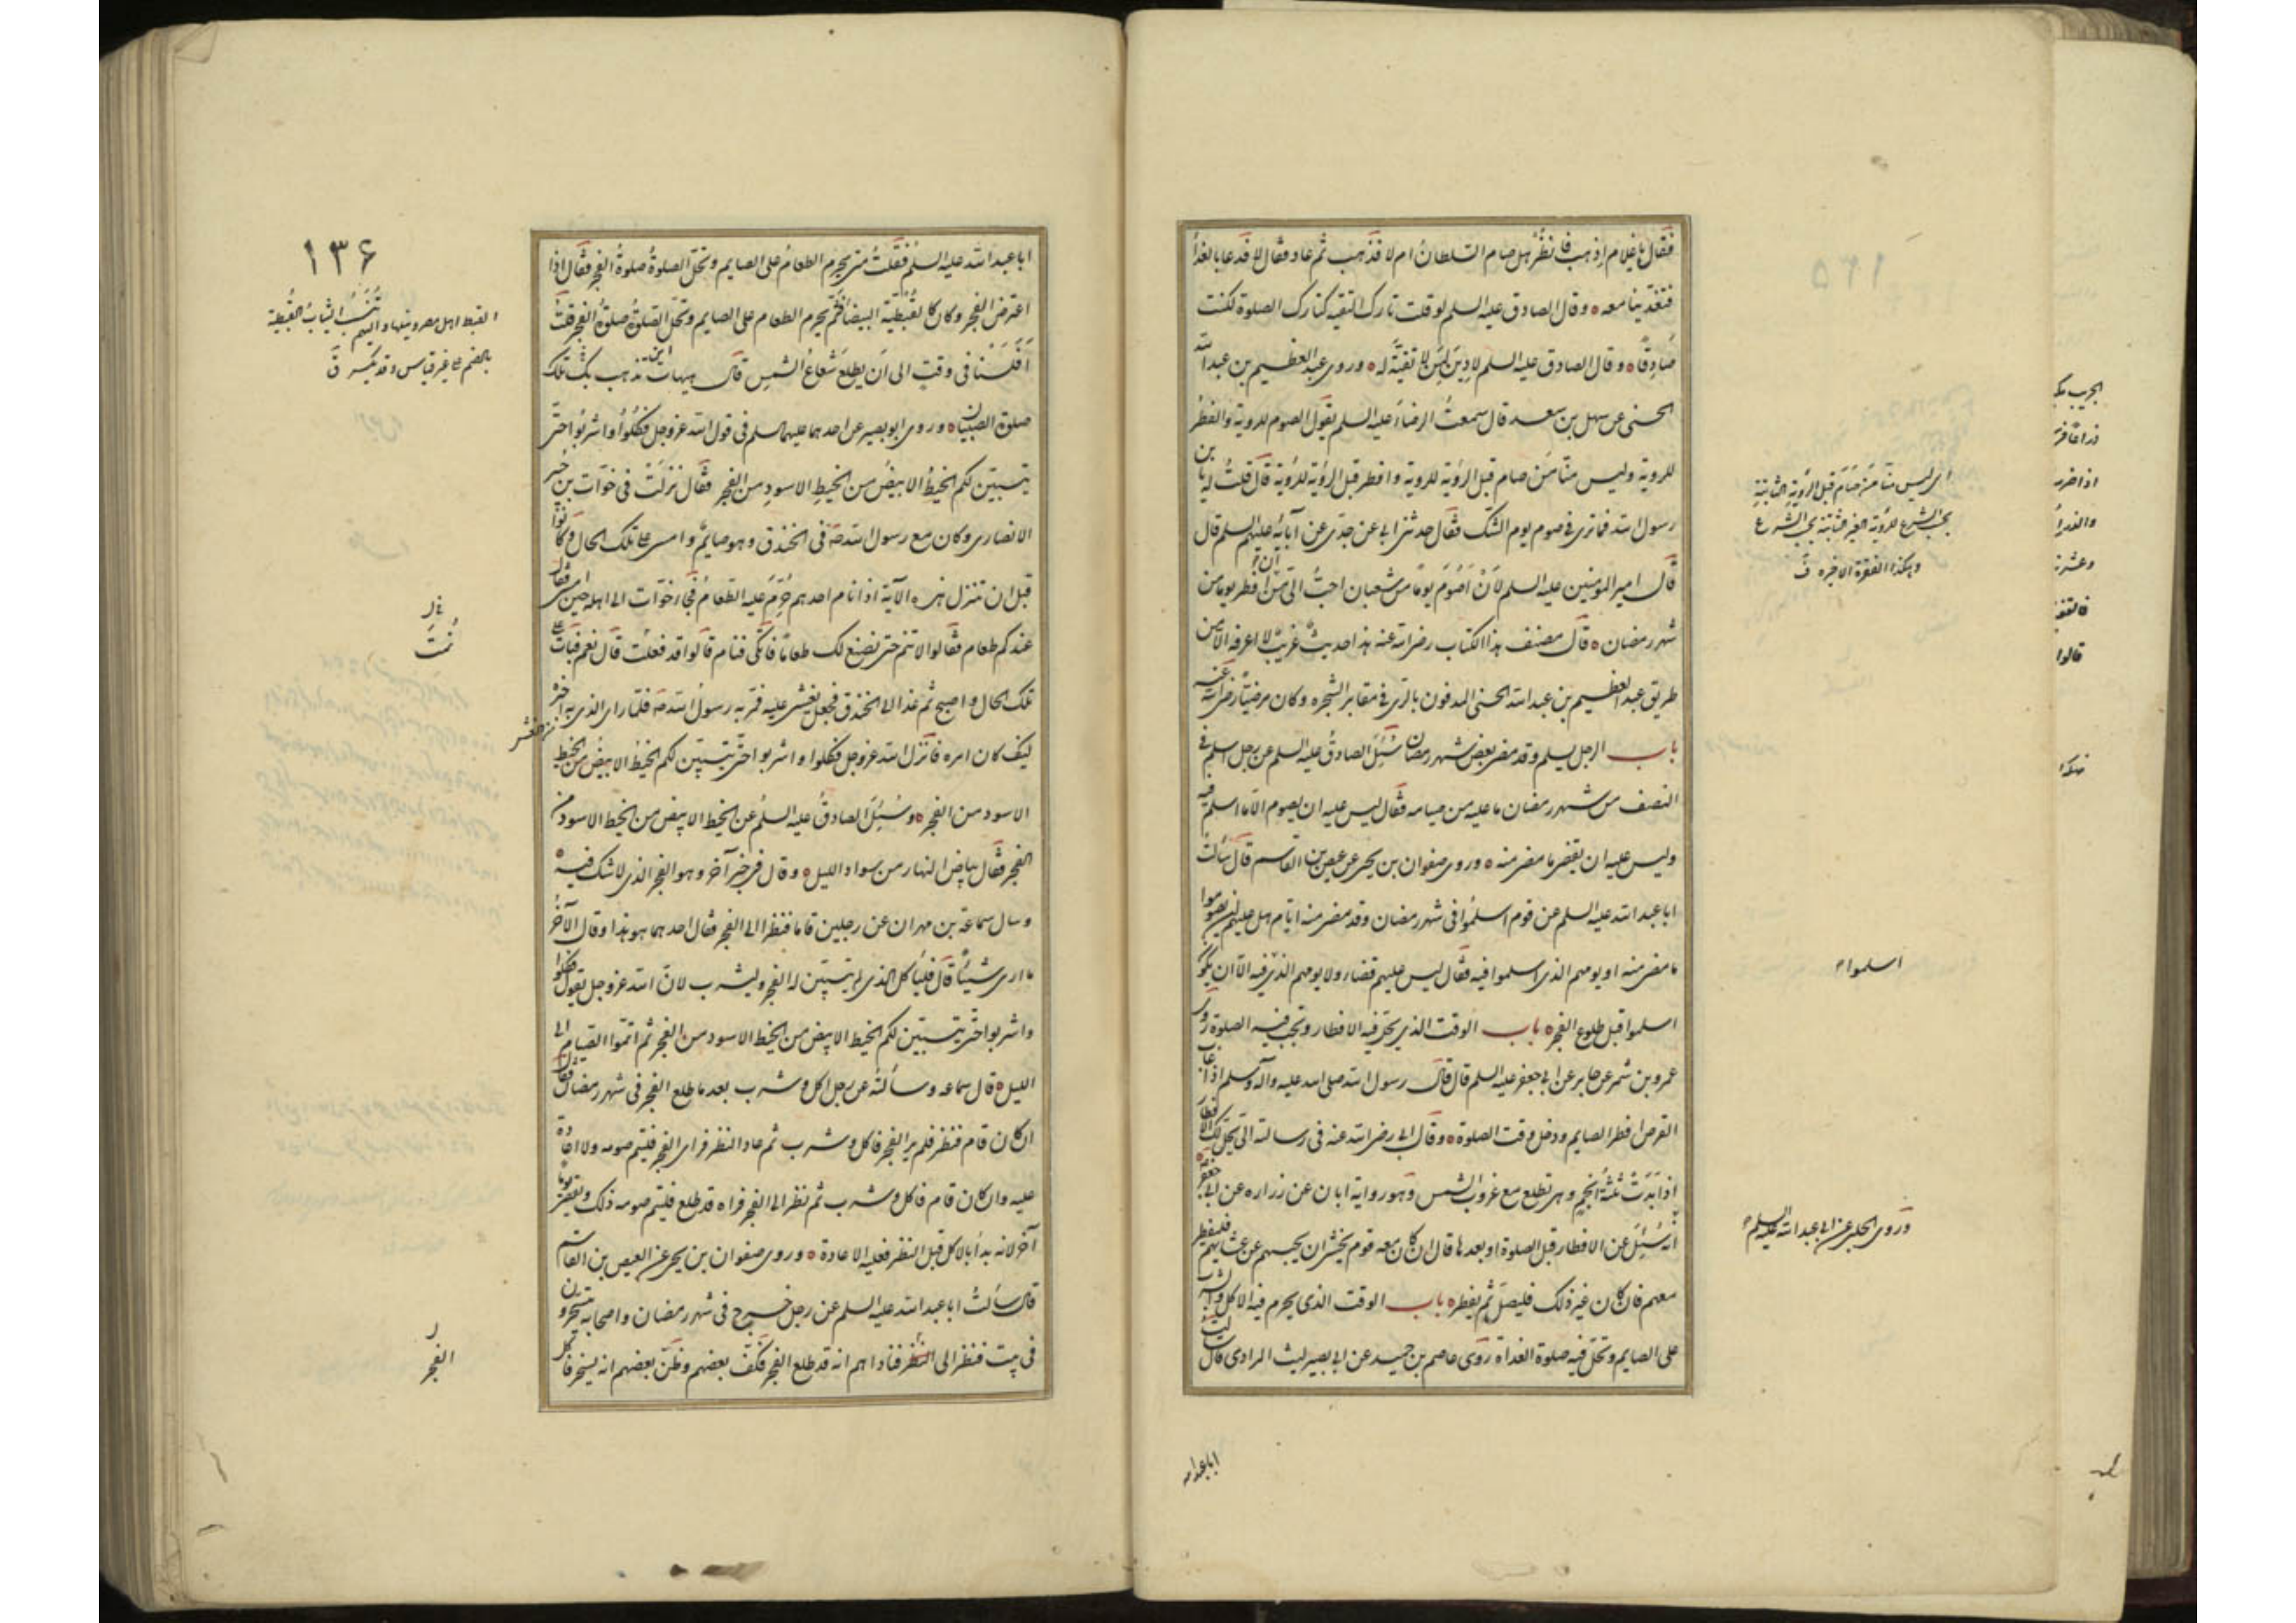 فقال يا غلام اذهب فانظر هل صام السلطان ام لا فذهب ثم عاد فقال لا فدعا بالغداء
فتغدينا معه ٥ وقال الصادق عليه السلم لو قلت تارك التقيه كتارك الصلوة لكنت
صادقا ٥ وقال الصادق عليه السلم لا دين لمن لا تقية له ٥ وروى عبد العظيم بن عبد الله
الحسنى عن سهل بن سعد قال سمعت الرضا عليه السلم يقول الصوم للروية والفطر
للروية وليس منا من صام قبل الرؤية للروية وافطر قبل الرؤية للرؤية قال قلت له يا بن
رسول الله فما ترى فى صوم يوم الشك فقال حدثنى ابى عن جدى عن آبائه عليهم السلم قال
قال امير المومنين عليه السلم لان اصوم يوما من شعبان احب الى من ان افطر يوما من
شهر رمضان ٥ قال مصنف هذا الكتاب رضى الله عنه هذا حديث غريب لا اعرفه الا من
طريق عبد العظيم بن عبد الله الحسنى المدفون بالرى فى مقابر الشجره وكان مرضيا رضى الله عنه
باب الرجل يسلم وقد مضى بعض شهر رمضان سئل الصادق عليه السلم عن رجل اسلم فى
النصف من شهر رمضان ما عليه من صيامه فقال ليس عليه ان يصوم الا ما اسلم فيه
وليس عليه ان يقضى ما مضى منه ٥ وروى صفوان بن يحيى عن عيص بن القاسم قال سالت
ابا عبد الله عليه السلم عن قوم اسلموا فى شهر رمضان وقد مضى منه ايام هل عليهم ان يصوموا
ما مضى منه او يومهم الذى اسلموا فيه فقال ليس عليهم قضاء ولا يومهم الذى فيه الا ان يكونوا
اسلموا قبل طلوع الفجر ٥ باب الوقت الذى يحل فيه الافطار وتجب فيه الصلوة روى
عمرو بن شمر عن جابر عن ابى جعفر عليه السلم قال قال رسول الله صلى الله عليه وآله وسلم اذا غاب
القرص افطر الصايم ودخل وقت الصلوة ٥ وقال ابى رضى الله عنه فى رسالته الى يحل لك الافطار
اذا بدت ثلثة انجم وهى تطلع مع غروب الشمس وهو رواية ابان عن زراره عن ابى جعفر
انه سئل عن الافطار قبل الصلوة او بعدها قال ان كان معه قوم يخشى ان يحبسهم عن عشائهم فليفطر
معهم فان كان غير ذلك فليصل ثم يفطر ٥ باب الوقت الذى يحرم فيه الاكل والشرب
على الصايم وتحل فيه صلوة الغداة روى عاصم بن حميد عن ابى بصير ليث المرادى قال سالت
ابا عبد الله
اى ليس منا من صام قبل الرؤية الثابتة
بحسب الشرع للرؤية الغير الثابتة بحسب الشرع
وهكذا الفقرة الاخيره ف
اسلموا
وروى الحلبى عن ابى عبد الله عليه السلم
١٣٦
ابا عبد الله عليه السلم فقلت متى يحرم الطعام على الصايم وتحل الصلوة صلوة الفجر فقال اذا
اعترض الفجر وكان كالقبطية البيضاء فثم يحرم الطعام على الصايم وتحل الصلوة صلوة الفجر قلت
افلسنا فى وقت الى ان يطلع شعاع الشمس قال هيهات اين تذهب بك تلك
صلوة الصبيان ٥ وروى ابو بصير عن احدهما عليهما السلم فى قول الله عز وجل فكلوا واشربوا حتى
يتبين لكم الخيط الابيض من الخيط الاسود من الفجر فقال نزلت فى خوات بن جبير
الانصارى وكان مع رسول الله صه فى الخندق وهو صايم وامسى على تلك الحال وكانوا
قبل ان تنزل هذه الآية اذا نام احدهم حرم عليه الطعام فجاء خوات الى اهله حين امسى فقال
عندكم طعام فقالوا لا تنم حتى نصنع لك طعاما فاتكى فنام قالوا قد فعلت قال نعم فبات على
تلك الحال واصبح ثم غدا الى الخندق فجعل يغشى عليه فمر به رسول الله صه فلما راى الذى به اخبره
كيف كان امره فانزل الله عز وجل فكلوا واشربوا حتى يتبين لكم الخيط الابيض من الخيط
الاسود من الفجر ٥ وسئل الصادق عليه السلم عن الخيط الابيض من الخيط الاسود من
الفجر فقال بياض النهار من سواد الليل ٥ وقال فى خبر آخر وهو الفجر الذى لا شك فيه ٥
وسال سماعة بن مهران عن رجلين قاما فنظرا الى الفجر فقال احدهما هو هذا وقال الآخر
ما ارى شيئا قال فلياكل الذى لم يتبين له الفجر وليشرب لان الله عز وجل يقول فكلوا
واشربوا حتى يتبين لكم الخيط الابيض من الخيط الاسود من الفجر ثم اتموا الصيام الى
الليل ٥ قال سماعه وسالته عن رجل اكل وشرب بعد ما طلع الفجر فى شهر رمضان فقال
ان كان قام فنظر فلم ير الفجر فاكل وشرب ثم عاد النظر فراى الفجر فليتم صومه ولا اعادة
عليه وان كان قام فاكل وشرب ثم نظر الى الفجر فراه قد طلع فليتم صومه ذلك ويقضى يوما
آخر لانه بدأ بالاكل قبل النظر فعليه الاعادة ٥ وروى صفوان بن يحيى عن العيص بن القاسم
قال سالت ابا عبد الله عليه السلم عن رجل خرج فى شهر رمضان واصحابه يتسحرون
فى بيت فنظر الى النظر فناداهم انه قد طلع الفجر فكف بعضهم وظن بعضهم انه يسخر فاكل
القبط اهل مصر وبنكها واليهم تنسب الثياب القبطية
بالضم على غير قياس وقد يكسر ق
نمت
الفجر